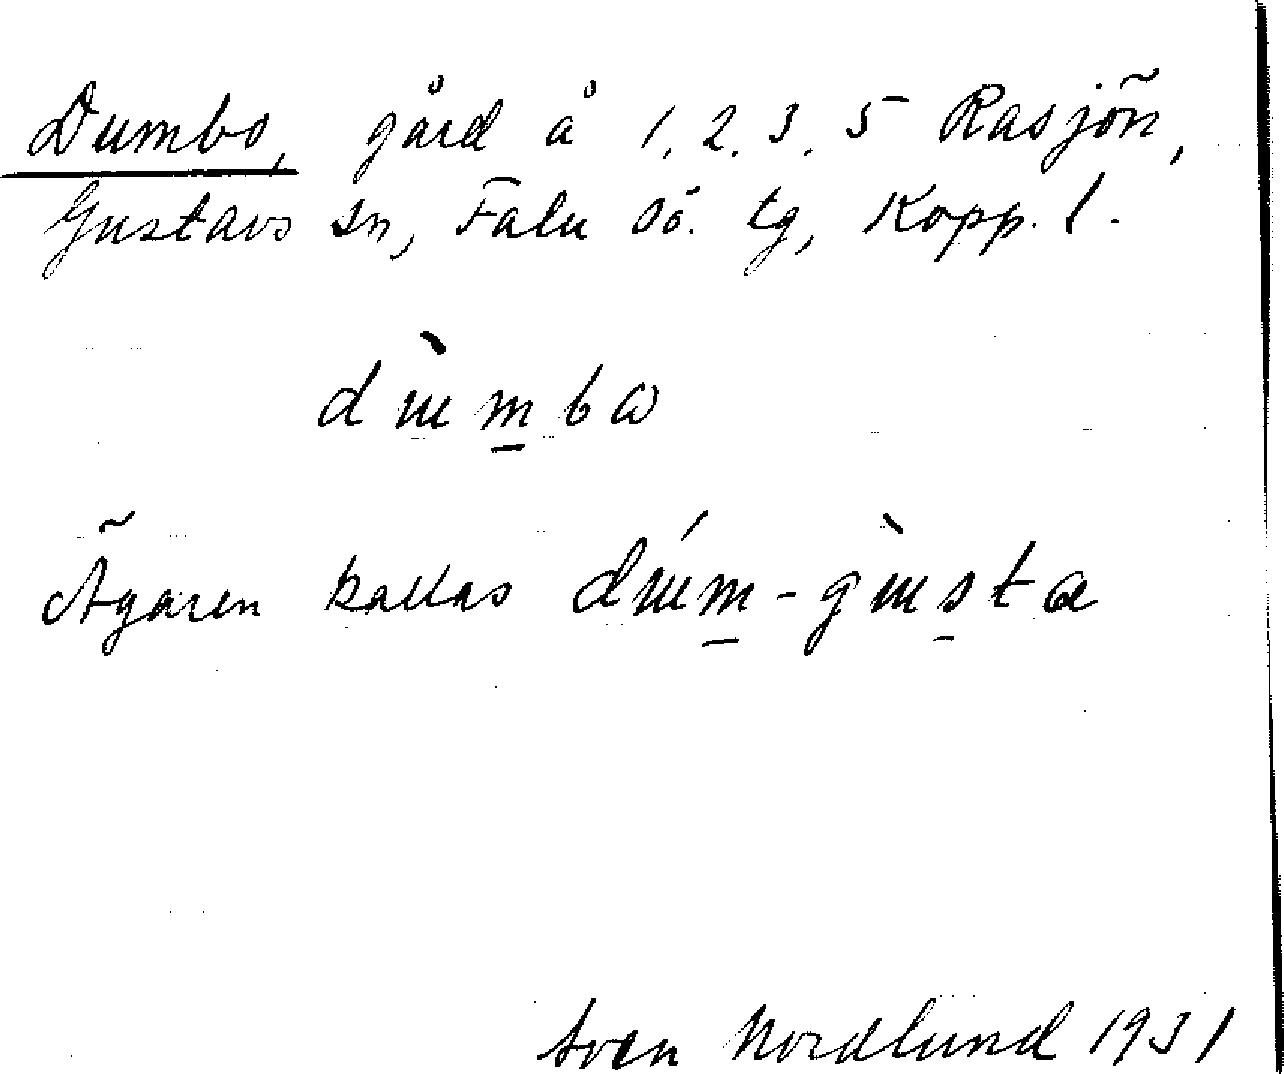 Dumbo, gård å 1, 2, 3, 5 Rasjön,
Gustavs sn, Falu sö. tg, Kopp. l.
dùm̲bω
Ägaren kallas dúm̲-gùs̲ta
Sven Nordlund 1931